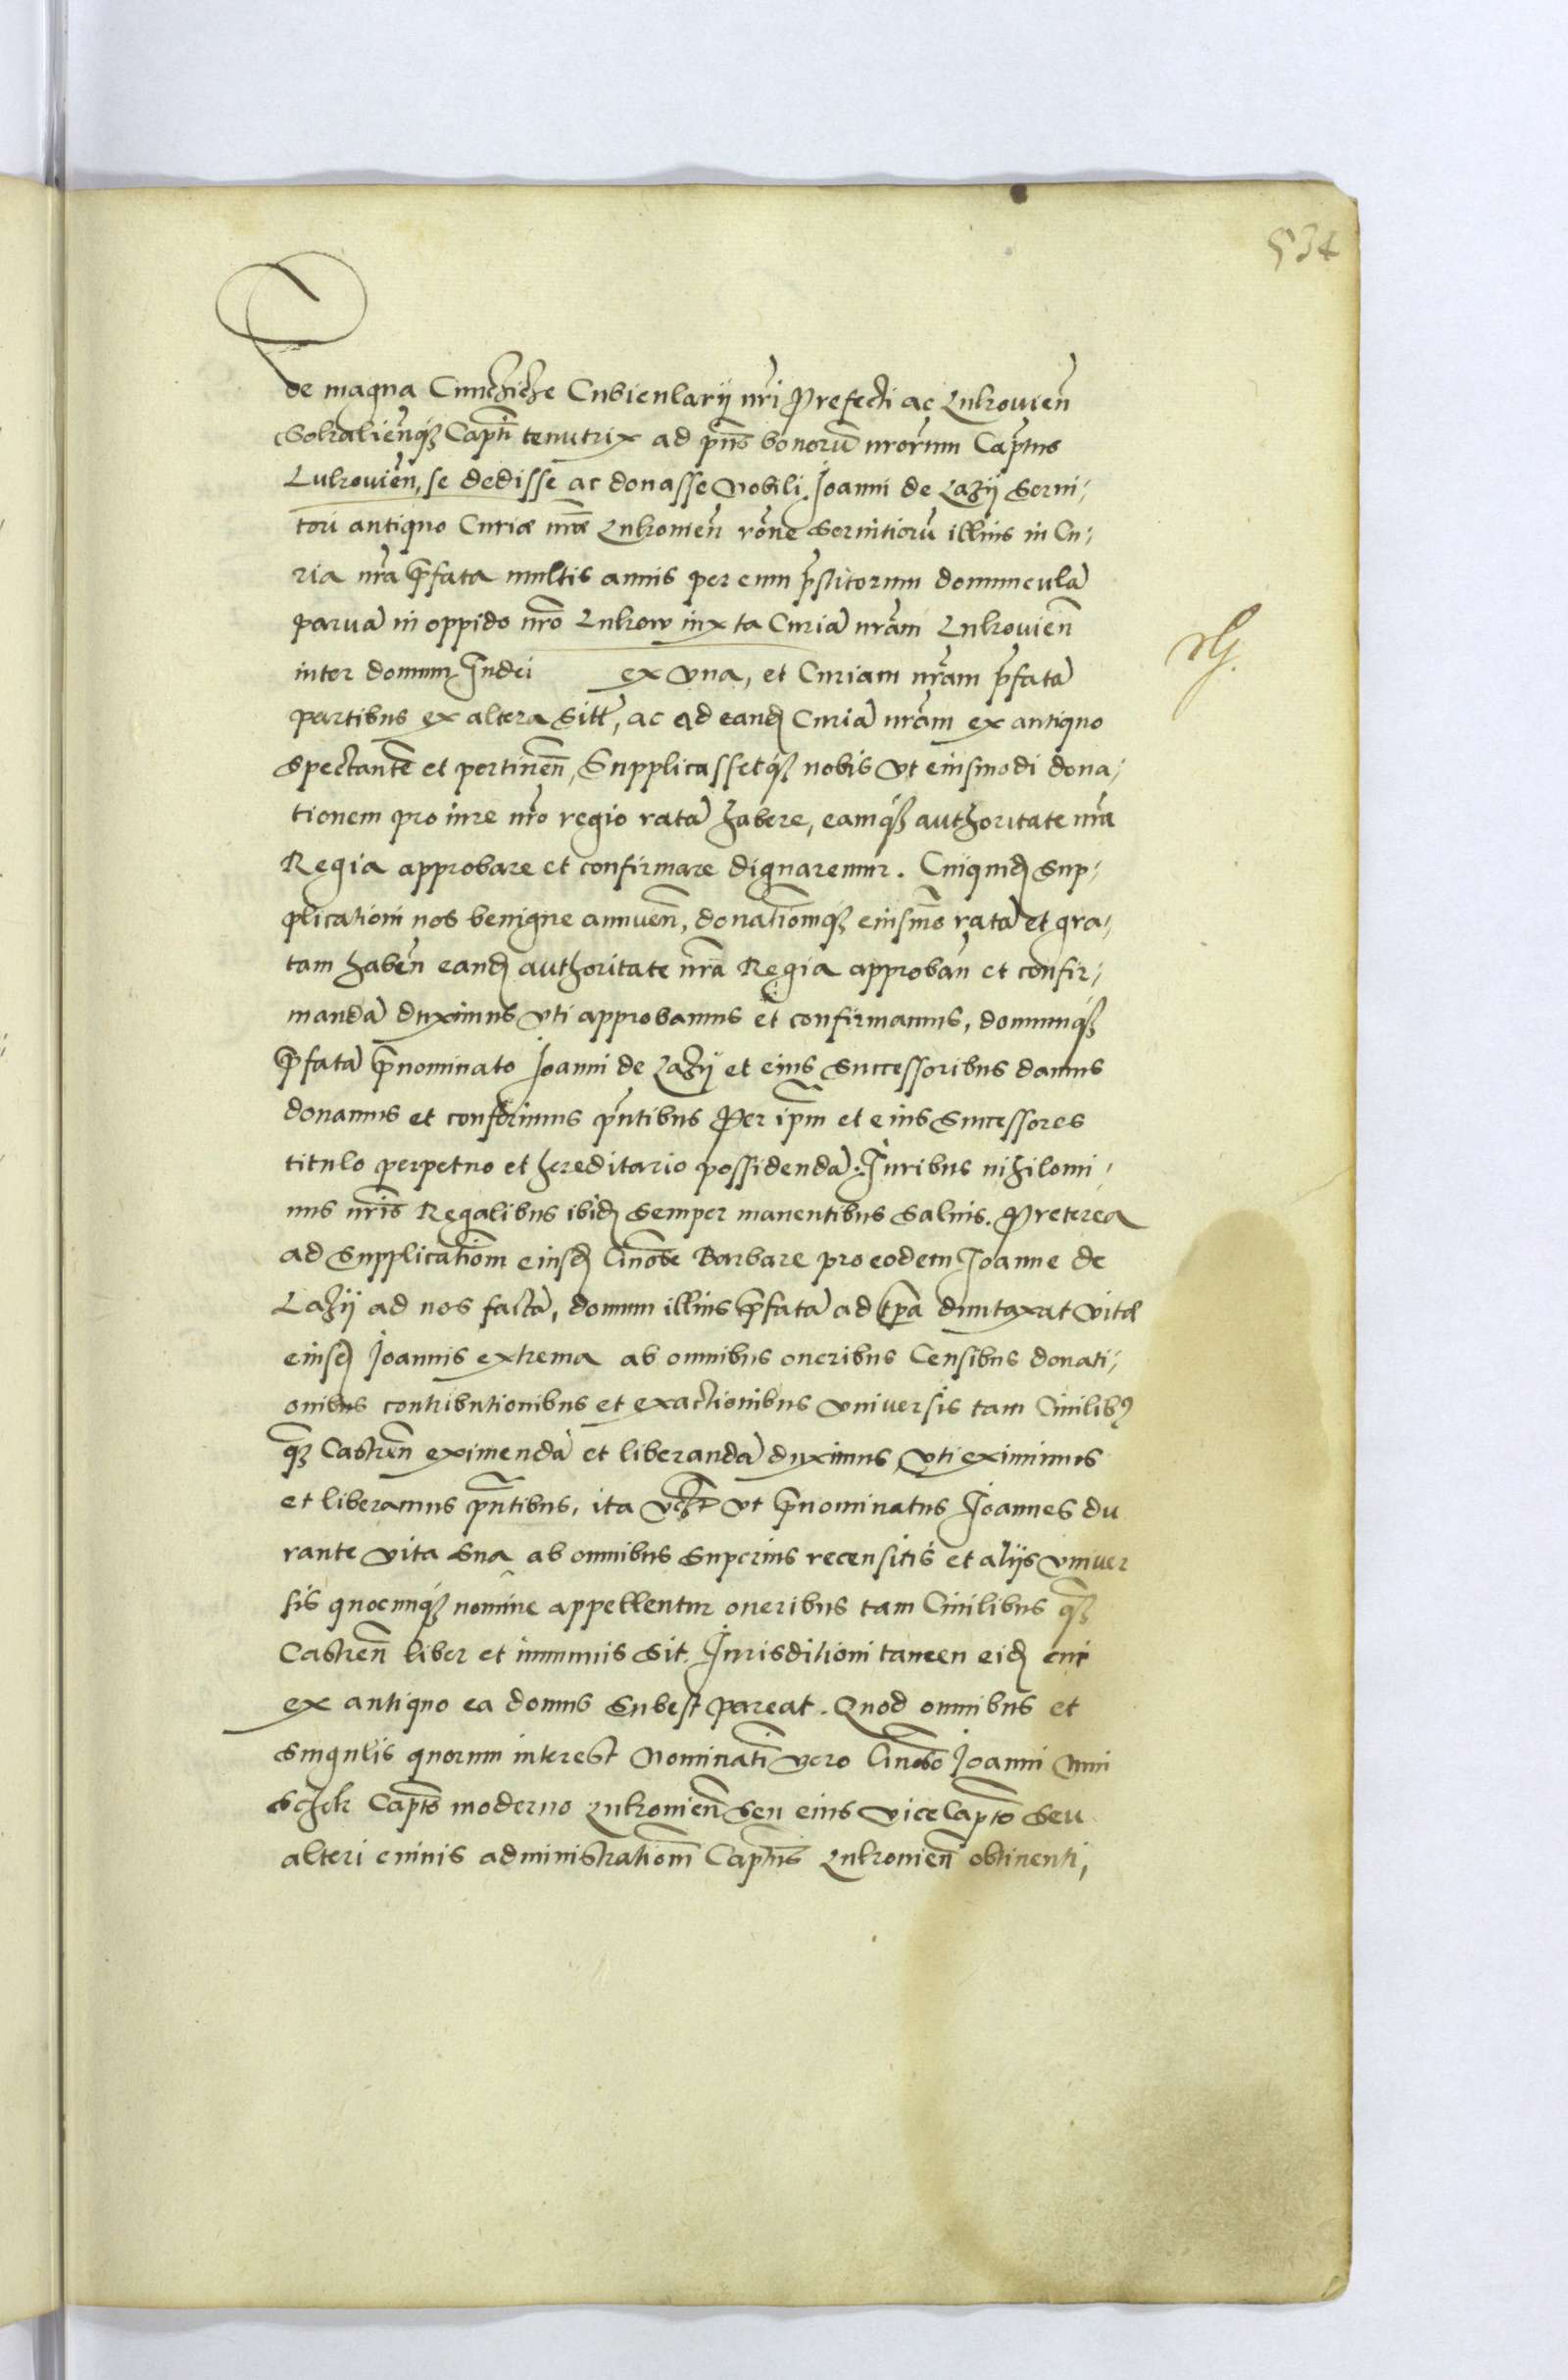 534
de magna Cunchiche Cubicularij nr̃i Prefecti ac Lukouieñ
Sokalieñq₃ Captĩ tenutrix ad pñs bonorũ nrorum Captus
Lukouieñ, se dedisse ac donasse Nobili Joanni de Lazij Serui⸗
tori antiquo Curiæ nr̃æ Lukouieñ rõne Seruitiorũ illius in Cu⸗
ria nr̃a p̃fata multis annis per eum p̃stitorum domunculã
paruã in oppido nr̃o Lukow iuxta Curiã nr̃am Lukouieñ
inter domum Judei ex vna, et Curiam nr̃am p̃fatã
partibus ex altera Sitt̃, ac ad eand Curiã nr̃am ex antiquo
Spectantẽ et pertineñ, Supplicassetq₃ nobis vt eiusmodi dona⸗
tionem pro iure nr̃o regio ratã habere, eamq₃ authoritate nr̃a
Regia approbare et confirmare dignaremur. Cuiquid Sup⸗
plicationi nos benigne annueñ, donatiomq₃ eiusmõ ratã et gra⸗
tam habeñ eand authoritate nr̃a Regia approbañ et confir⸗
mandã duximus vti approbamus et confirmamus, domumq₃
p̃fatã p̃nominato Joanni de Lazij et eius Successoribus damus
donamus et conferimus pñtibus Per ipm̃ et eius Successores
titulo perpetuo et hereditario possidendã. Juribus nihilomi⸗
nus nr̃is Regalibus ibid semper manentibus Saluis. Preterea
ad Supplicatiom̃ eiusd Gnosæ Barbare pro eodem Joanne de
Lazij ad nos factã, domum illius p̃fatã ad tp̃a duntaxat vitæ
eiusd Joannis extrema ab omnibus oneribus Censibus donati⸗
onibus contributionibus et exactionibus vniuersis tam Ciuilib⁹
q̃₃ Castreñ eximendã et liberandã duximus, vti eximimus
et liberamus pñtibus, ita vt p̃nominatus Joannes du
rante vita Sua ab omnibus Superius recensitis et alijs vniuer
sis quocunq₃ nomine appellentur oneribus tam Ciuilibus q̃₃
Castreñ liber et immunis Sit. Jurisditioni tamen eid cui
ex antiquo ea domus Subest pareat. Quod omnibus et
Singulis quorum interest Nominatĩ vero Gnoso Joanni Mni
schek Captõ moderno Lukouieñ Seu eius viceCaptõ Seu
alteri cuiuis administratiom̃ Captus Lukouieñ obtinenti,